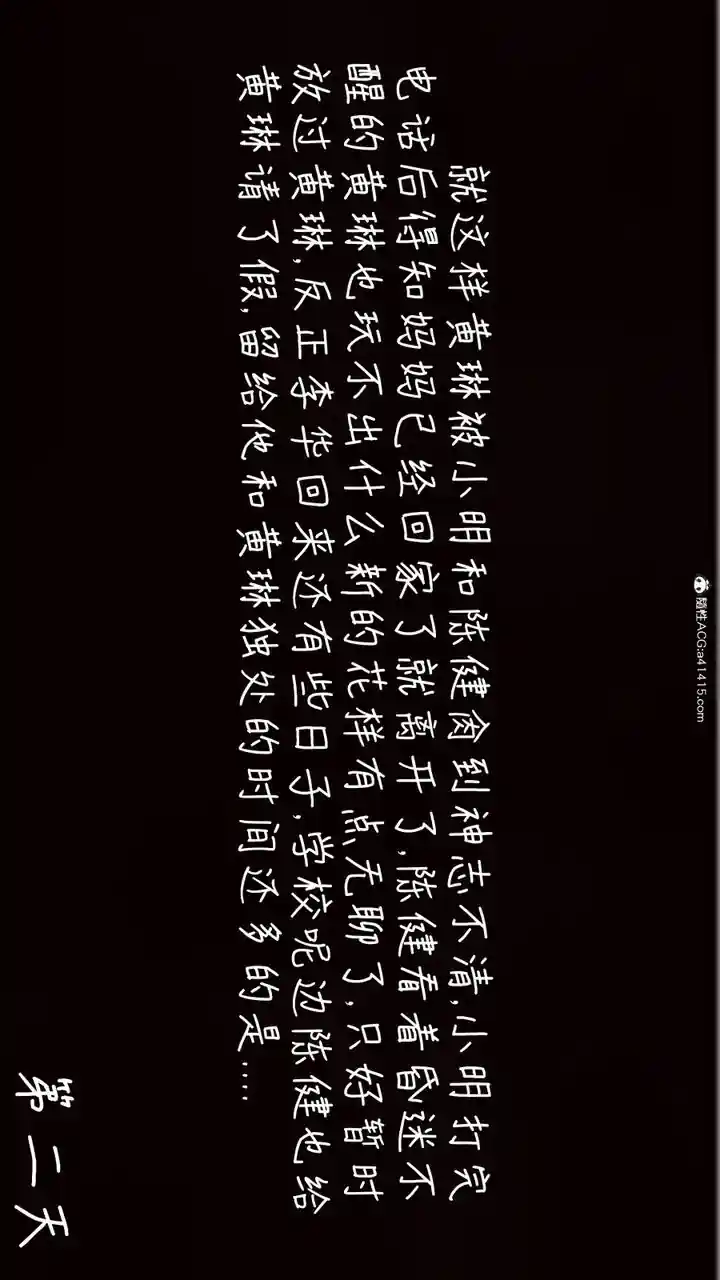 就这样黄琳被小明和陈健肏到神志不清,小明打完
电话后得知妈妈已经回家了就离开了,陈健看着昏迷不
醒的黄琳也玩不出什么新的花样有点无聊了,只好暂时
放过黄琳,反正李华回来还有些日子,学校呢边陈健也给
黄琳请了假,留给他和黄琳独处的时间还多的是.....
第二天
随性ACG:a41415.com